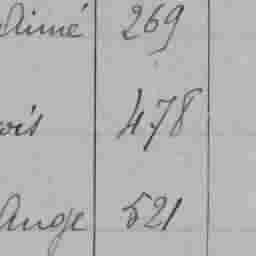 Aimé 269
ois 478
Ange 521